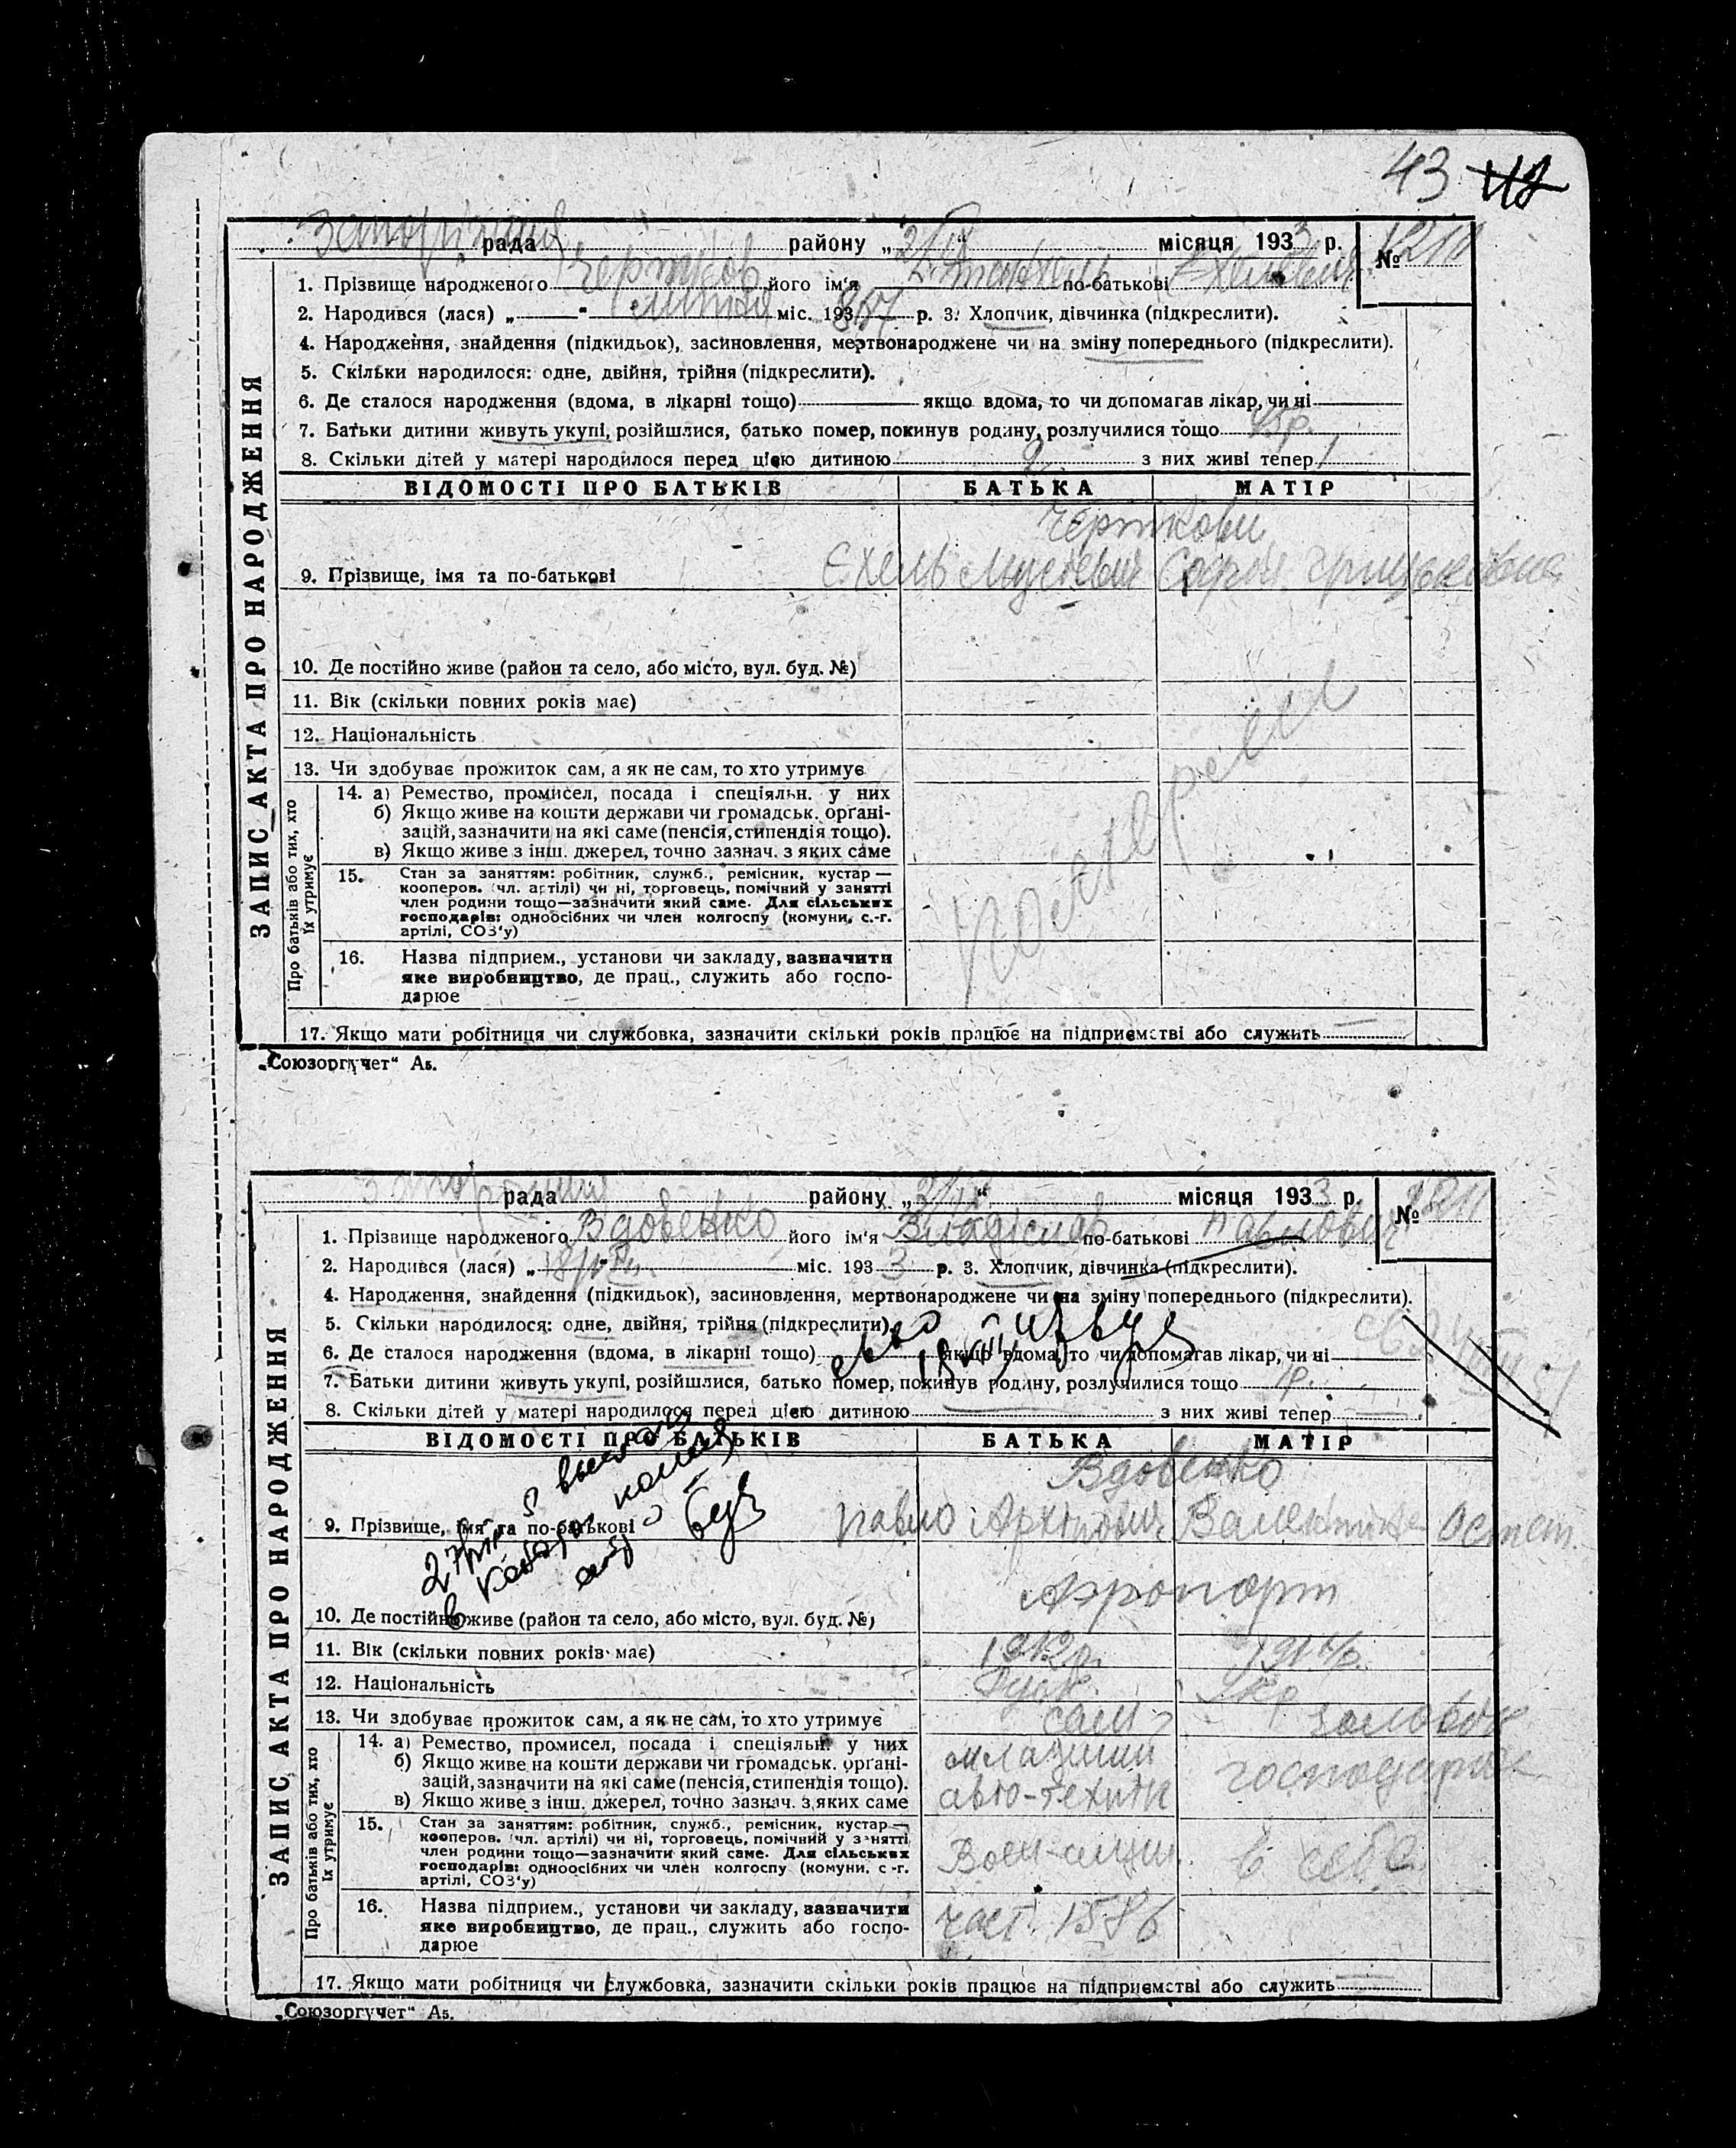 43
Запорізька рада району „2/IX“ місяця 1933 р. №
1. Прізвище народженого Чертков його ім'я по-батькові
2. Народився (лася) „ “ липня міс. 193 р. 3. Хлопчик, дівчинка (підкреслити).
4. Народження, знайдення (підкидьок), засиновлення, мертвонароджене чи на зміну попереднього (підкреслити).
5. Скільки народилося: одне, двійня, трійня (підкреслити).
6. Де сталося народження (вдома, в лікарні тощо) якщо вдома, то чи допомагав лікар, чи ні
7. Батьки дитини живуть укупі, розійшлися, батько помер, покинув родину, розлучилися тощо 45р.
8. Скільки дітей у матері народилося перед цією дитиною 2 з них живі тепер 1
ВІДОМОСТІ ПРО БАТЬКІВ БАТЬКА МАТІР
Черткови
9. Прізвище, імя та по-батькові Єхель Мусієвич Софія
10. Де постійно живе (район та село, або місто, вул. буд. №)
11. Вік (скільки повних років має)
12. Національність
13. Чи здобуває прожиток сам, а як не сам, то хто утримує
14. а) Ремество, промисел, посада і спеціяльн. у них
б) Якщо живе на кошти держави чи громадськ. органі-
зацій, зазначити на які саме (пенсія, стипендія тощо).
в) Якщо живе з інш. джерел, точно зазнач. з яких саме
15. Стан за заняттям: робітник, служб., ремісник, кустар —
кооперов. (чл. артілі) чи ні, торговець, помічний у занятті
член родини тощо—зазначити який саме. Для сільських
господарів: одноосібних чи член колгоспу (комуни, с.-г.
артілі, СОЗ'у)
16. Назва підприєм., установи чи закладу, зазначити
яке виробництво, де прац., служить або госпо-
дарює
17. Якщо мати робітниця чи службовка, зазначити скільки років працює на підприємстві або служить
ЗАПИС АКТА ПРО НАРОДЖЕННЯ
Про батьків або тих, хто
їх утримує
„Союзоргучет“ А5.
Запорізька рада району „3/IX“ місяця 1933 р. № 1211
1. Прізвище народженого Вдовенко його ім'я Владіслав по-батькові Павлович
2. Народився (лася) „18/VIII міс. 1933 р. 3. Хлопчик, дівчинка (підкреслити).
4. Народження, знайдення (підкидьок), засиновлення, мертвонароджене чи на зміну попереднього (підкреслити).
5. Скільки народилося: одне, двійня, трійня (підкреслити).
6. Де сталося народження (вдома, в лікарні тощо) якщо вдома, то чи допомагав лікар, чи ні
7. Батьки дитини живуть укупі, розійшлися, батько помер, покинув родину, розлучилися тощо 1р.
8. Скільки дітей у матері народилося перед цією дитиною з них живі тепер
ВІДОМОСТІ ПРО БАТЬКІВ БАТЬКА МАТІР
Вдовенко
9. Прізвище, імя та по-батькові Павло Архипович Валентина Остап.
Аэропорт
10. Де постійно живе (район та село, або місто, вул. буд. №)
11. Вік (скільки повних років має) 1912р. 1914р.
12. Національність Руск. Укр
13. Чи здобуває прожиток сам, а як не сам, то хто утримує сам чоловік
14. а) Ремество, промисел, посада і спеціяльн. у них младший господарка
б) Якщо живе на кошти держави чи громадськ. органі-
зацій, зазначити на які саме (пенсія, стипендія тощо).
в) Якщо живе з інш. джерел, точно зазнач. з яких саме авто-техник
15. Стан за заняттям: робітник, служб., ремісник, кустар —
кооперов. (чл. артілі) чи ні, торговець, помічний у занятті
член родини тощо—зазначити який саме. Для сільських
господарів: одноосібних чи член колгоспу (комуни, с.-г.
артілі, СОЗ'у) в себе
16. Назва підприєм., установи чи закладу, зазначити
яке виробництво, де прац., служить або госпо-
дарює част. 1586
17. Якщо мати робітниця чи службовка, зазначити скільки років працює на підприємстві або служить
ЗАПИС АКТА ПРО НАРОДЖЕННЯ
Про батьків або тих, хто
їх утримує
„Союзоргучет“ А5.